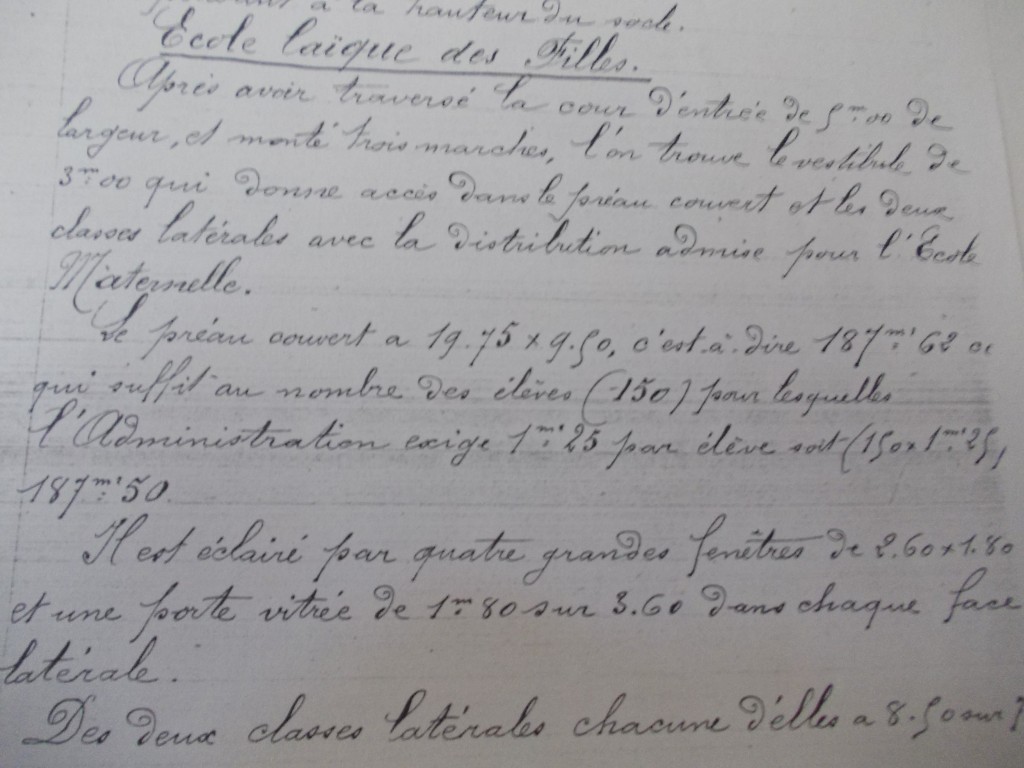 à la hauteur du socle.
Ecole laïque des Filles.
Après avoir traversé la cour d'entrée de 5m.00 de
largeur, et monté trois marches, l'on trouve le vestibule de
3m.00 qui donne accès dans le préau couvert et les deux
classes latérales avec la distribution admise pour l'Ecole
Maternelle.
Le préau couvert a 19.75 x 9.50, c'est-à-dire 187m² 62 ce
qui suffit au nombre des élèves (150) pour lesquelles
l'Administration exige 1m² 25 par élève soit (150 x 1m² 25,
187m² 50.
Il est éclairé par quatre grandes fenêtres de 2.60 x 1.80
et une porte vitrée de 1m 80 sur 3.60 dans chaque face
latérale.
Des deux classes latérales chacune d'élles a 8.50 sur